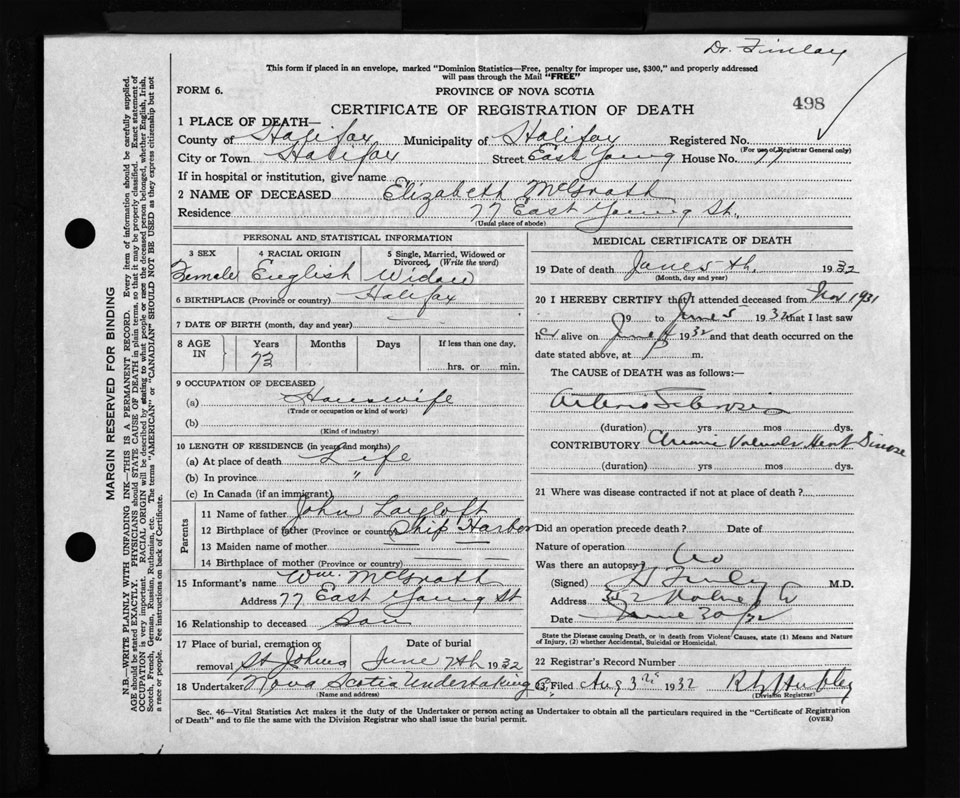 Dr. Finlay
This form if placed in an envelope, marked "Dominion Statistics—Free, penalty for improper use, $300," and properly addressed
will pass through the Mail "FREE"
FORM 6.
PROVINCE OF NOVA SCOTIA
CERTIFICATE OF REGISTRATION OF DEATH
498
1 PLACE OF DEATH—
County of Halifax Municipality of Halifax Registered No.
(For use of Registrar General only)
City or Town Halifax Street East Young House No. 77
If in hospital or institution, give name
2 NAME OF DECEASED Elizabeth McGrath
Residence 77 East Young St.
(Usual place of abode)
PERSONAL AND STATISTICAL INFORMATION
3 SEX 4 RACIAL ORIGIN 5 Single, Married, Widowed or
Divorced, (Write the word)
Female English Widow
6 BIRTHPLACE (Province or country) Halifax
7 DATE OF BIRTH (month, day and year)
8 AGE IN Years Months Days If less than one day,
73
hrs. or min.
9 OCCUPATION OF DECEASED
(a) Housewife
(Trade or occupation or kind of work)
(b)
(Kind of industry)
10 LENGTH OF RESIDENCE (in years and months)
(a) At place of death Life
(b) In province "
(c) In Canada (if an immigrant)
Parents
11 Name of father John
12 Birthplace of father (Province or country) Ship Harbor
13 Maiden name of mother
14 Birthplace of mother (Province or country)
15 Informant's name Wm. McGrath
Address 77 East Young St
16 Relationship to deceased Son
17 Place of burial, cremation or Date of burial
removal St Johns June 7th 1932
18 Undertaker Nova Scotia Undertaking Co.
(Name and address)
MEDICAL CERTIFICATE OF DEATH
19 Date of death June 5th. 1932
(Month, day and year)
20 I HEREBY CERTIFY that I attended deceased from Nov 1931
19 to June 5 1932 that I last saw
h alive on June 1932 and that death occurred on the
date stated above, at m.
The CAUSE of DEATH was as follows:—
Arterio Sclerosis
(duration) yrs mos dys.
CONTRIBUTORY Chronic Valvular Heart Disease
(duration) yrs mos dys.
21 Where was disease contracted if not at place of death?
Did an operation precede death? Date of
Nature of operation
Was there an autopsy? No
(Signed) M.D.
Address
Date June 30/32
State the Disease causing Death, or in death from Violent Causes, state (1) Means and Nature
of Injury, (2) whether Accidental, Suicidal or Homicidal.
22 Registrar's Record Number
23 Filed Aug 3 1932
(Division Registrar)
Sec. 46—Vital Statistics Act makes it the duty of the Undertaker or person acting as Undertaker to obtain all the particulars required in the "Certificate of Registration
of Death" and to file the same with the Division Registrar who shall issue the burial permit.
(OVER)
MARGIN RESERVED FOR BINDING
N.B.—WRITE PLAINLY WITH UNFADING INK—THIS IS A PERMANENT RECORD. Every item of information should be carefully supplied.
AGE should be stated EXACTLY. PHYSICIANS should STATE CAUSE OF DEATH in plain terms, so that it may be properly classified. Exact statement of
OCCUPATION is very important. RACIAL ORIGIN will be described by stating to what people or race the deceased person belonged, whether English, Irish,
Scotch, French, German, Russian, Ruthenian, etc. The terms "AMERICAN" or "CANADIAN" SHOULD NOT BE USED as they express citizenship but not
a race or people. See instructions on back of Certificate.